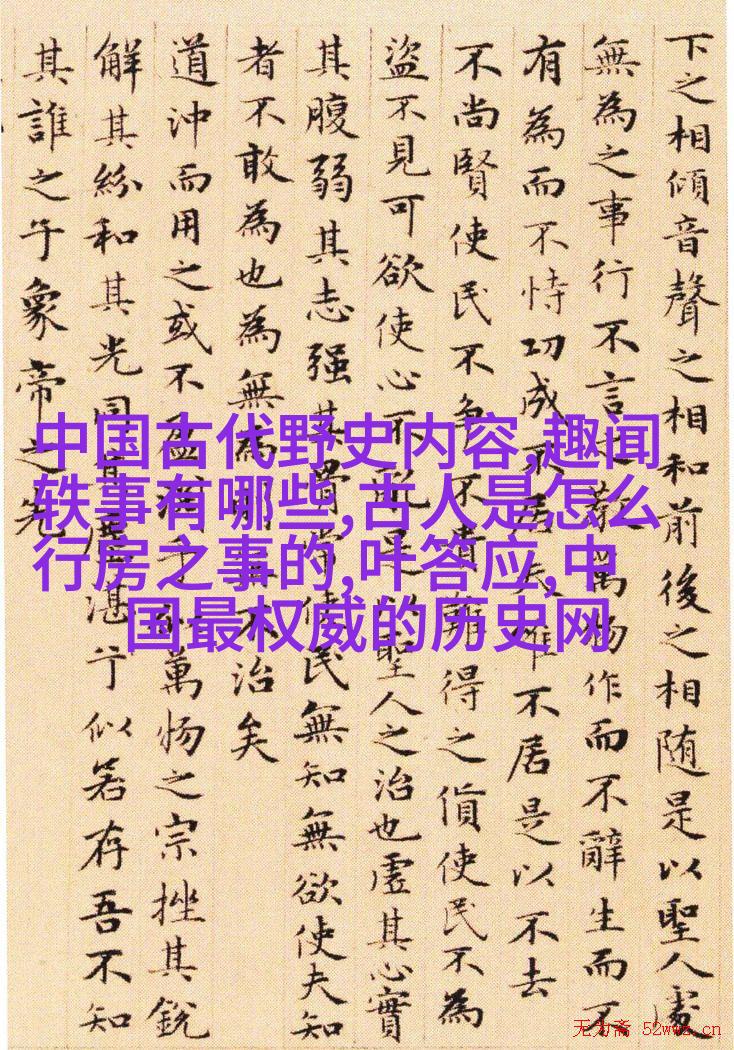 下之相傾音聲之相和前後之相随是以聖人處
無為之事行不言之教萬物作而不辭生而不
有為而不恃功成不居夫唯不居是以不去
不尚賢使民不争不貴難得之貨使民不為
盜不見可欲使心不亂是以聖人之治也虛其心實
其腹弱其志强其骨常使民無知無欲使夫知
者不敢為也為無為則無不治矣
道沖而用之或不盈淵乎似萬物之宗挫其銳
解其紛和其光同其塵湛兮似若存吾不知
其誰之子象帝之先
中国古代野史内容,趣闻
轶事有哪些,古人是怎么
行房之事的,叶答应,中
国最权威的历史网
无为斋 52wwz.cn